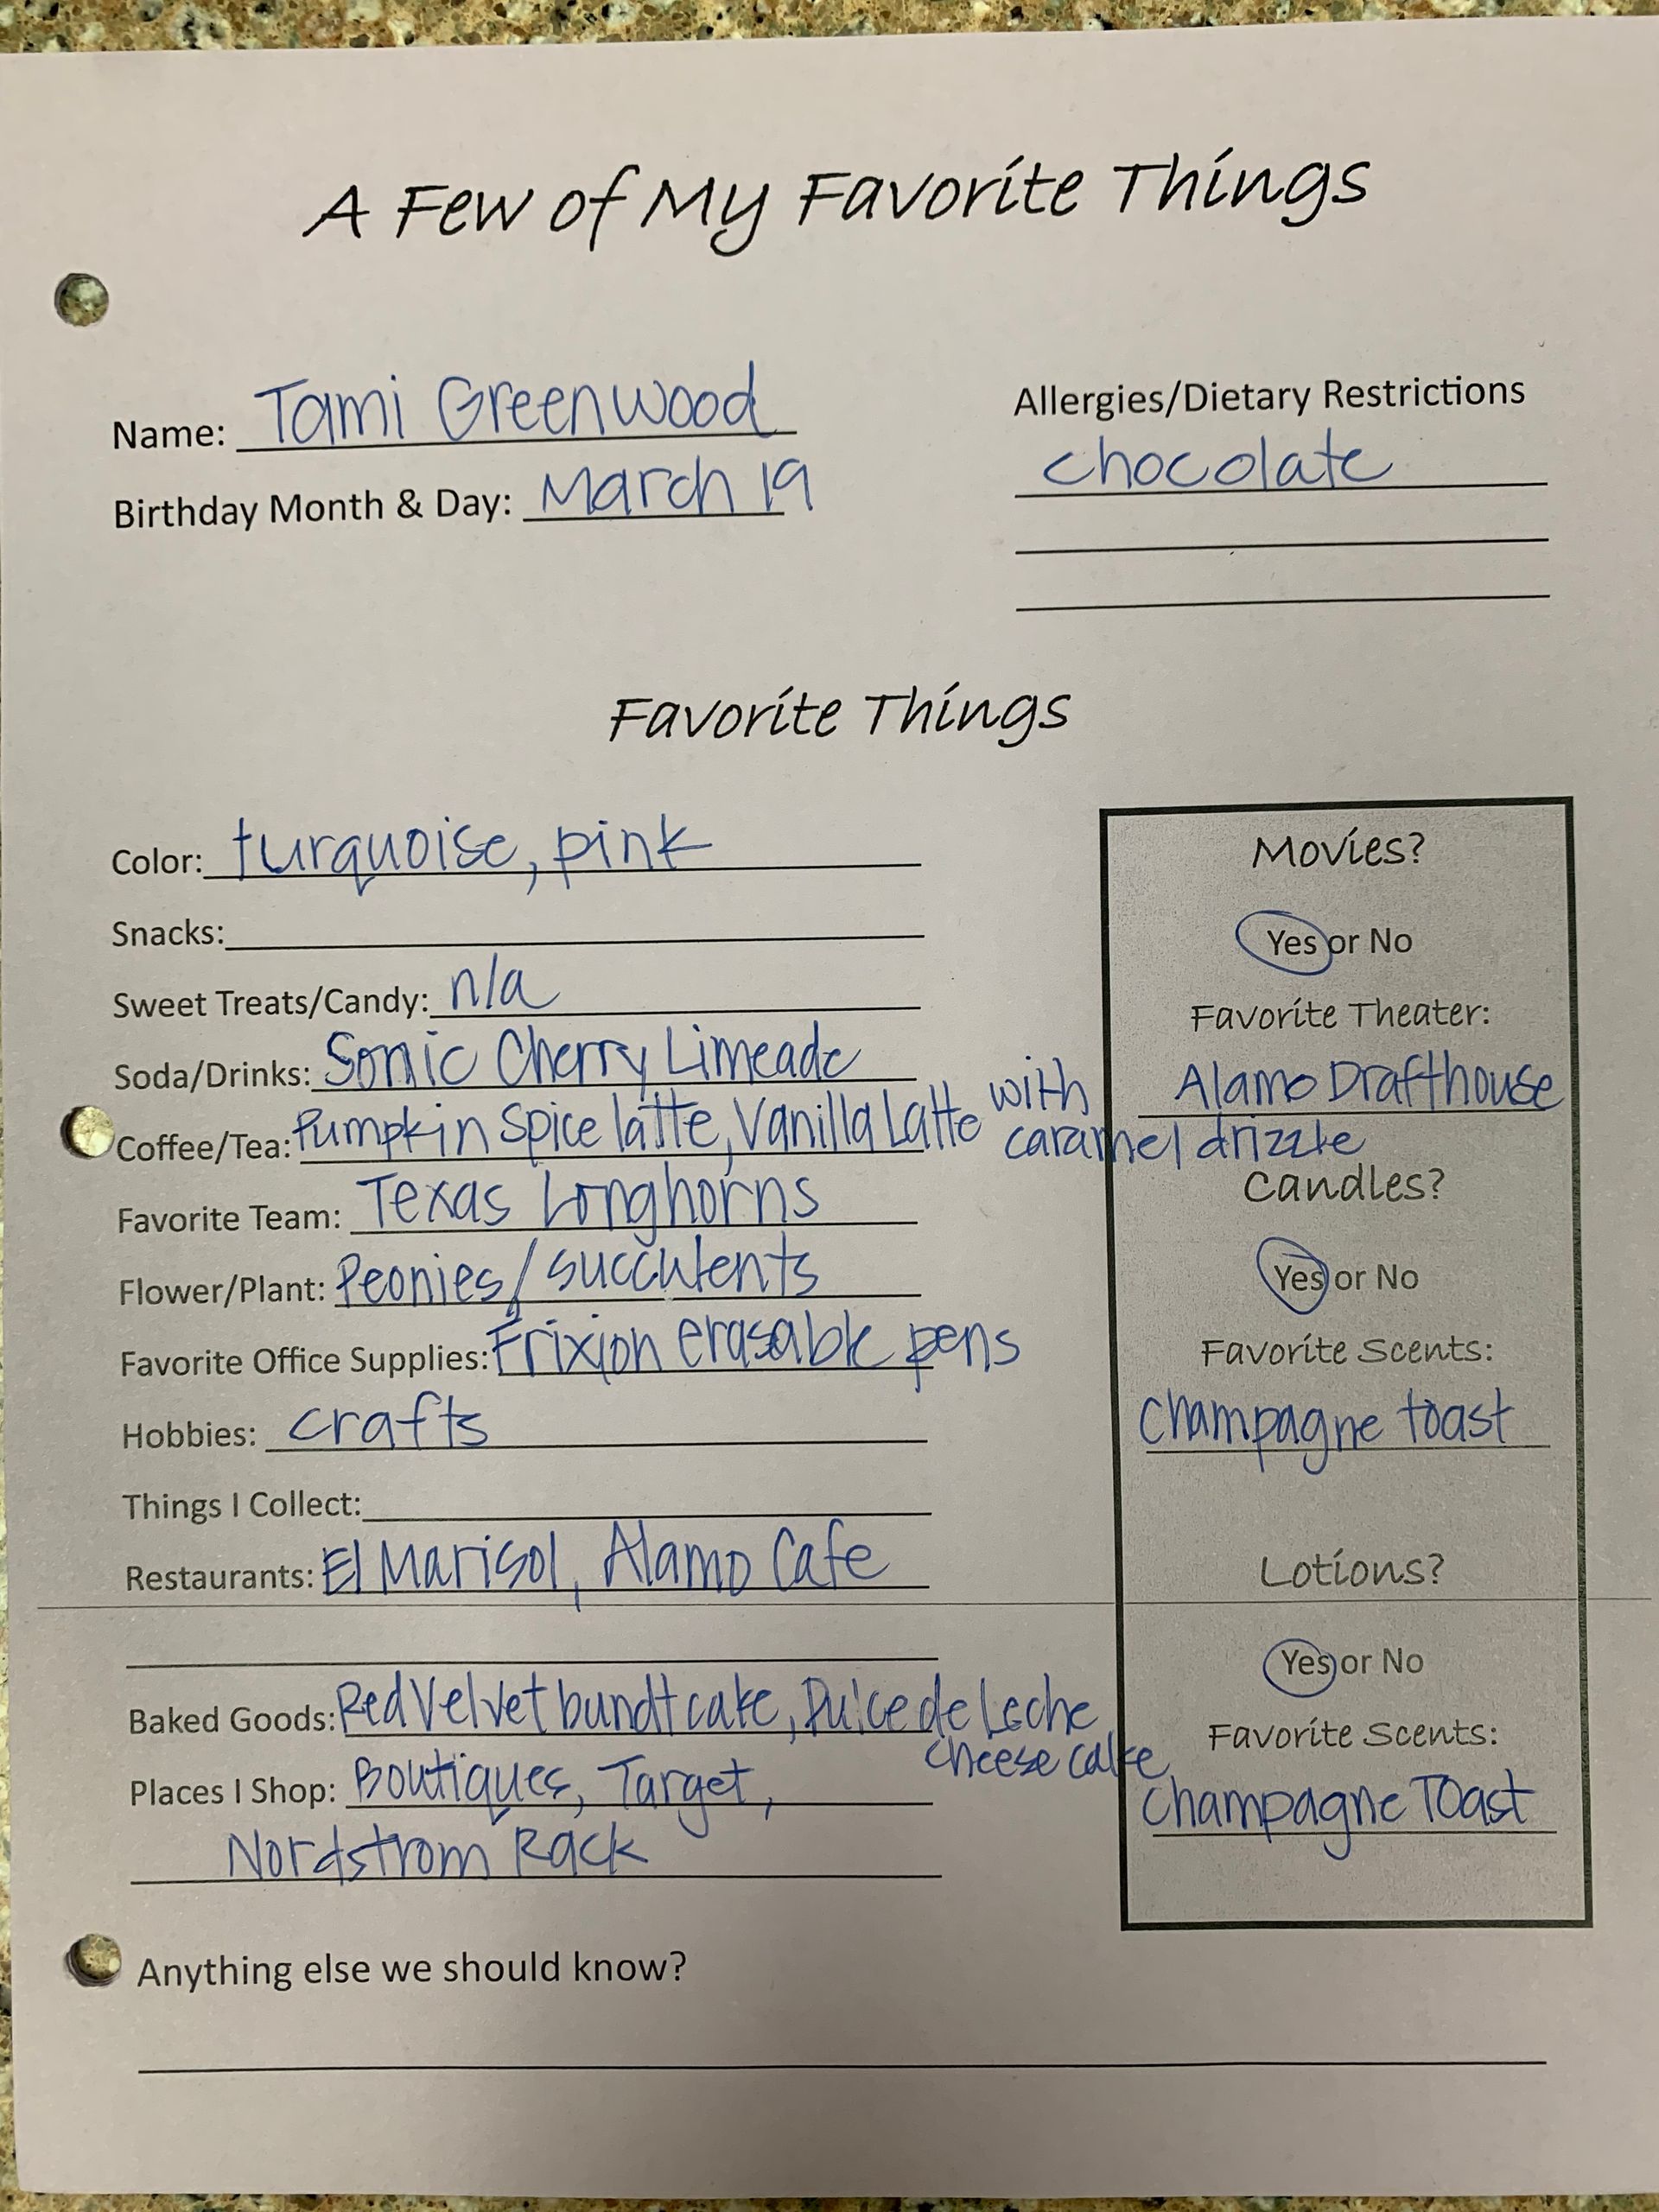 A Few of My Favorite Things
Name: Tami Greenwood
Birthday Month & Day: March 19
Allergies/Dietary Restrictions
chocolate
Favorite Things
Color: turquoise, pink
Snacks:
Sweet Treats/Candy: n/a
Soda/Drinks: Sonic Cherry Limeade
Coffee/Tea: Pumpkin Spice latte, Vanilla Latte with
caramel drizzle
Favorite Team: Texas Longhorns
Flower/Plant: Peonies/succulents
Favorite Office Supplies: Frixion erasable pens
Hobbies: crafts
Things I Collect:
Restaurants: El Marisol, Alamo Cafe
Baked Goods: Red Velvet bundt cake, Dulce de Leche
cheese cake
Places I Shop: Boutiques, Target,
Nordstrom Rack
Movies?
Yes or No
Favorite Theater:
Alamo Drafthouse
Candles?
Yes or No
Favorite Scents:
Champagne toast
Lotions?
Yes or No
Favorite Scents:
Champagne Toast
Anything else we should know?